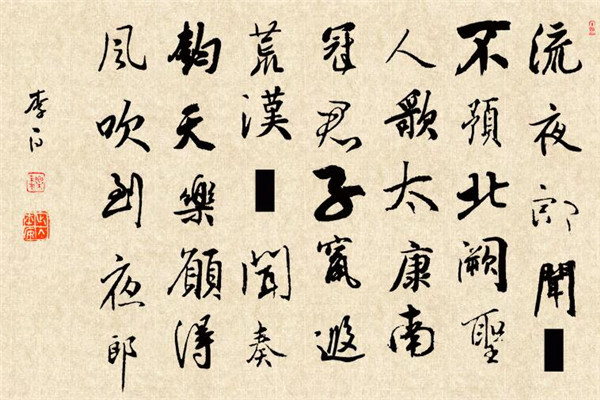 流夜郎聞
不預北闕聖
人歌太康南
冠君子竄遐
荒漢聞奏
鈞天樂願得
風吹到夜郎
李白